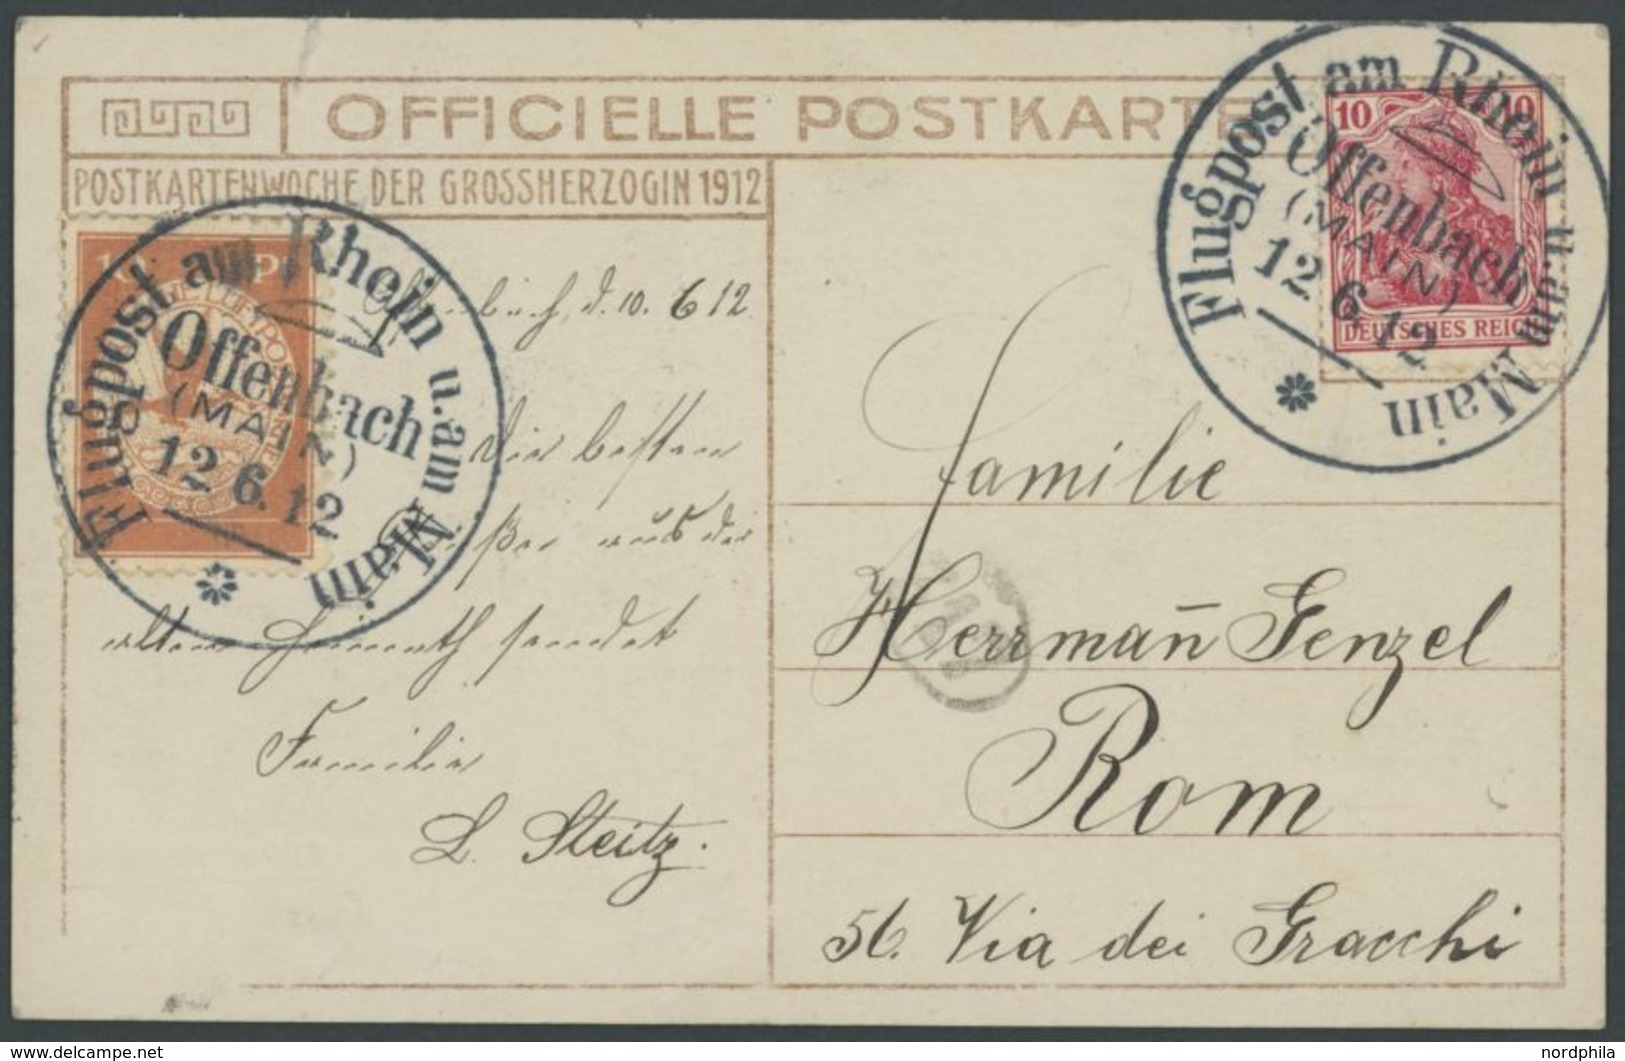 OFFICIELLE POSTKARTE
POSTKARTENWOCHE DER GROSSHERZOGIN 1912
10
PF
Flugpost am Rhein u. am Main
Offenbach
(MAIN)
12. 6. 12
10 10
DEUTSCHES REICH
Flugpost am Rhein u. am Main
Offenbach
(MAIN)
12. 6. 12
d. 10. 6 12.
Die besten
aus der
alten Heimath sendet
Familie
L. Steitz.
Familie
Herrmañ Genzel
Rom
56. Via dei Gracchi
www.delcampe.net
nordphila